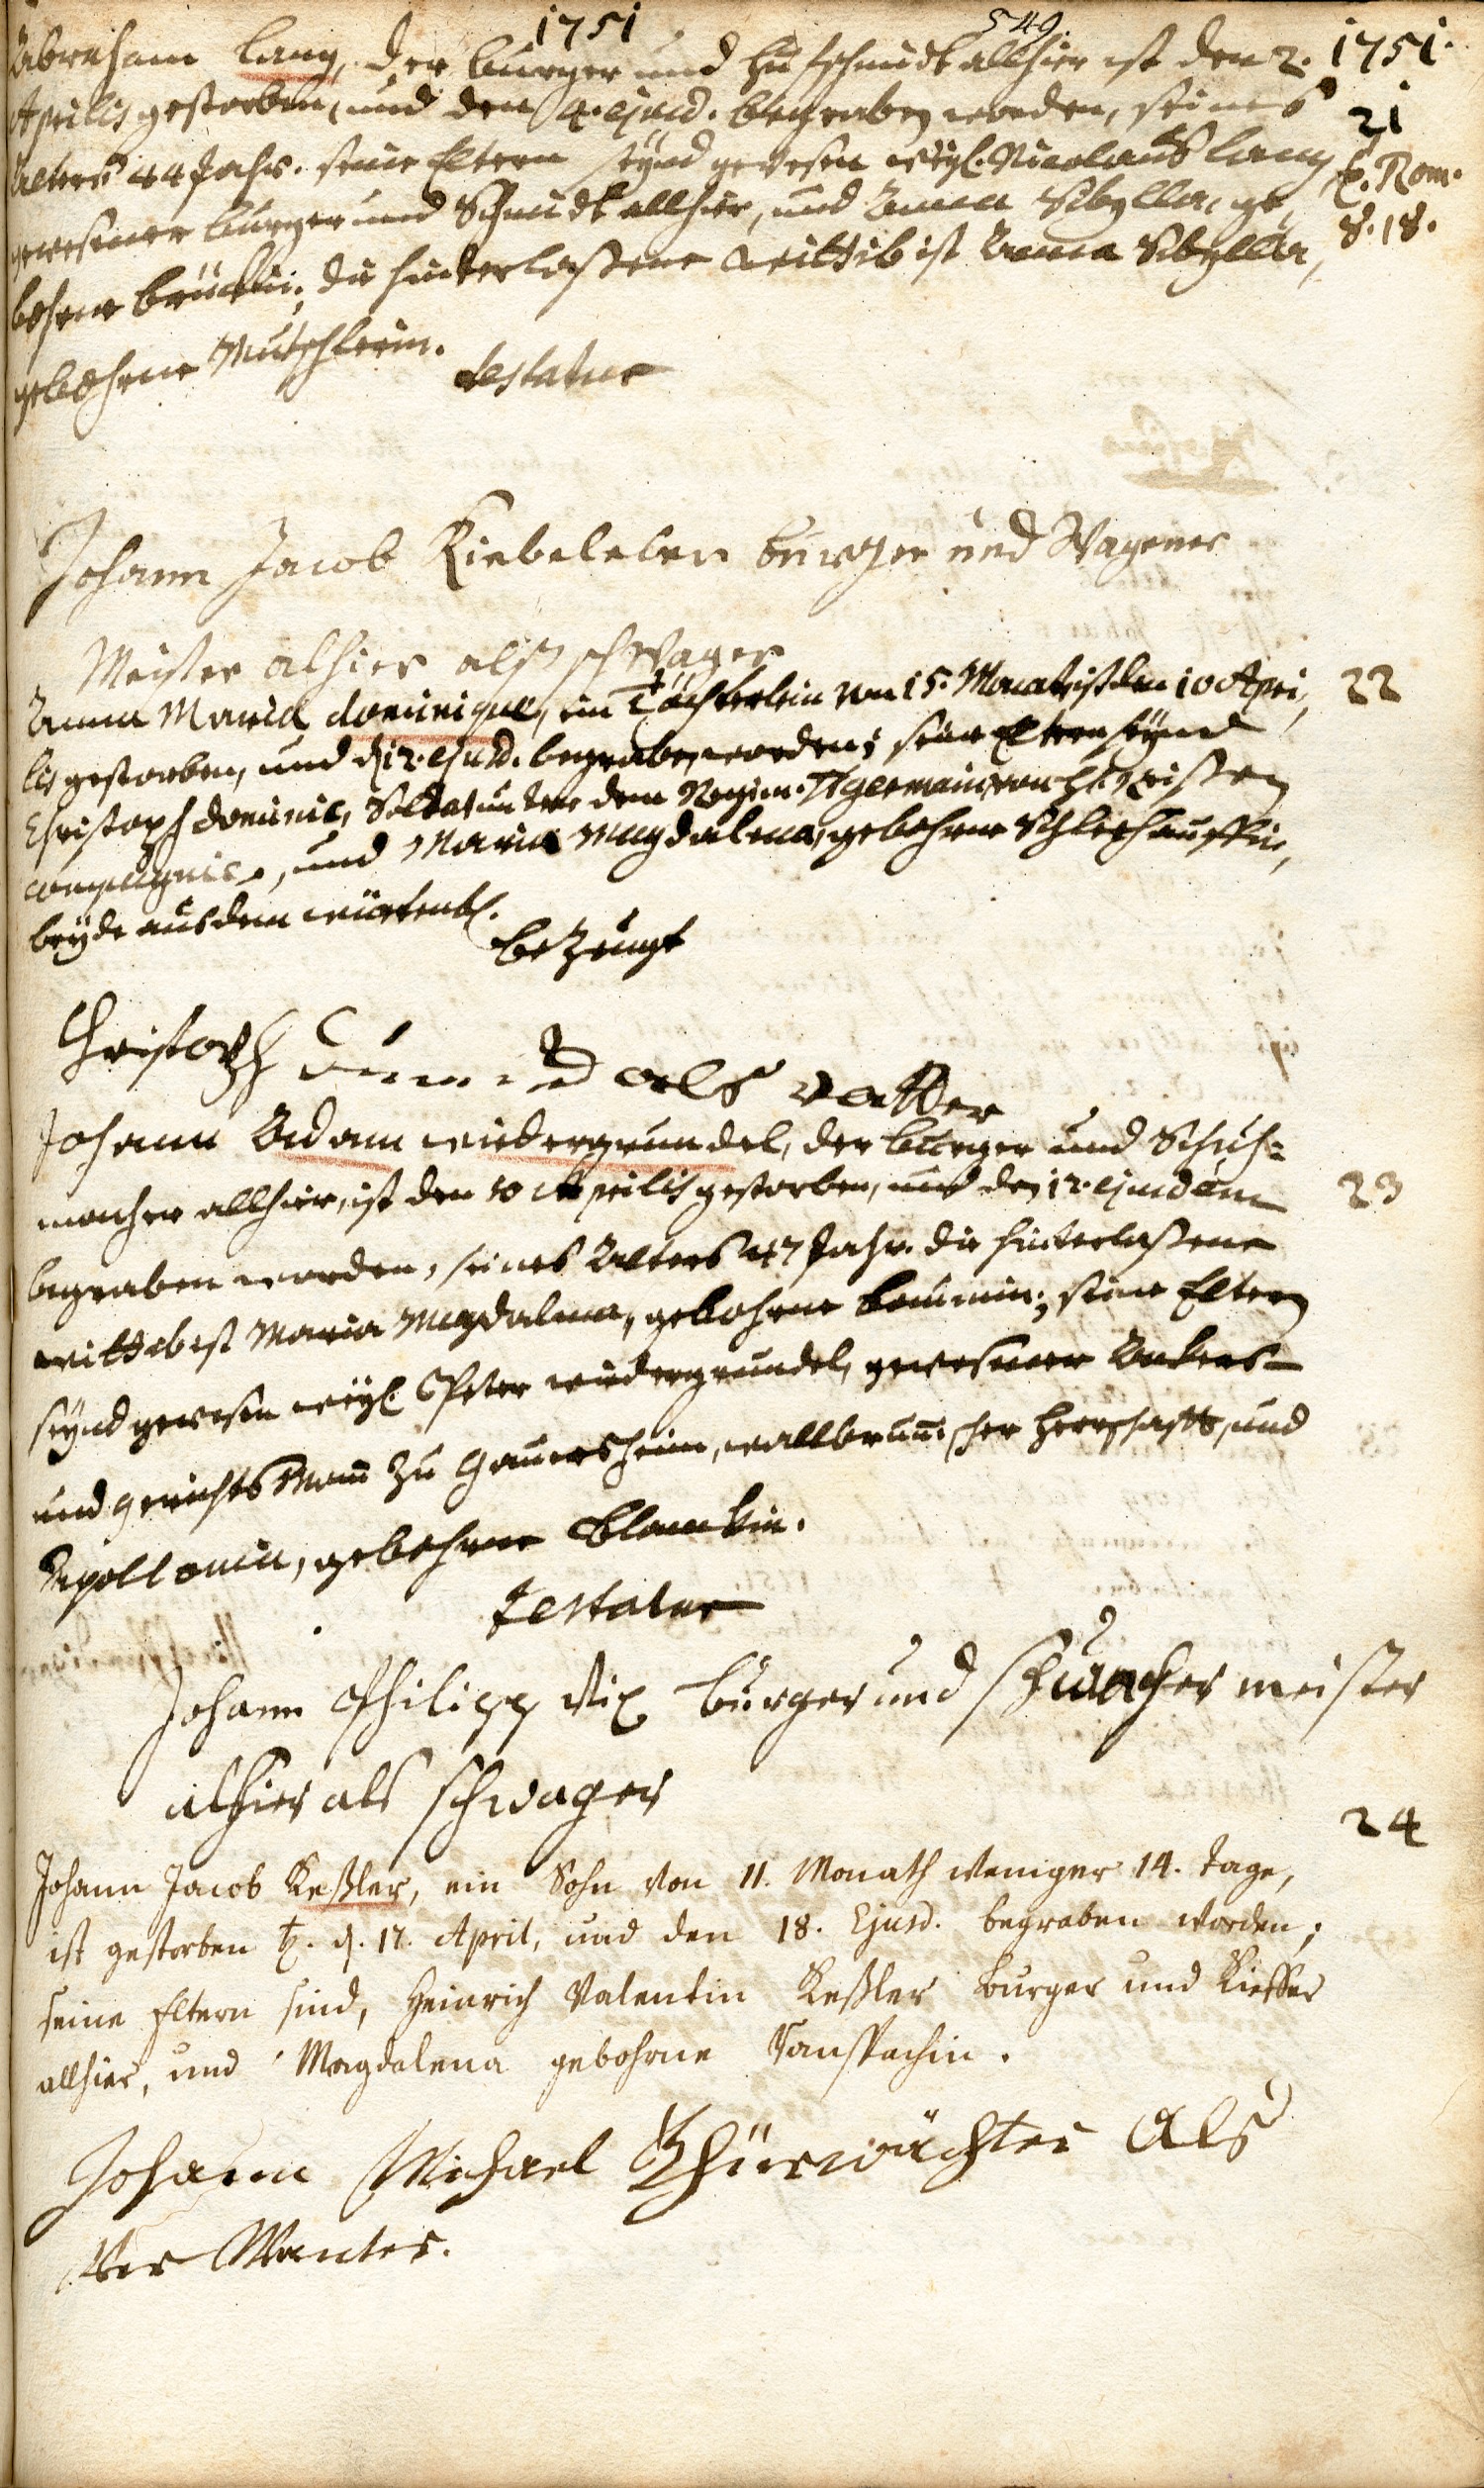 1751
549.
Abraham Lang, der burger und Hufschmidt allhier ist den 2. 1751.
Aprilis gestorben, und den 4. ejusd. begraben worden, seines 21
Alters 44 Jahr. seine Eltern seynd gewesen weyl. Nicolaus Lang T. Rom.
gewesener burger und Schmidt allhier, und Anna Sibylla, ge, 8. 18.
bohrne ; die hinterlaßene Wittib ist Anna Sibylla,
gebohrne Mutschlerin.
testatur
Johann Jacob Kiebeleber burger und Wagener
Meister alhier alß schwager
Anna Maria dominique, ein Töchterlein von 15. Monat, ist den 10 Apri, 22
lis gestorben, und d. 12. ejusd. begraben worden; seine Eltern seynd
Christoph dominic, Soldat unter dem Regim. St germain, von
compagnie, und Maria Magdalena, gebohrne Schlechauffin,
beyde aus dem würtenb.
bezeugt
Christoph als vatter
Johann Adam niedergrundel, der burger und Schuh-
macher allhier, ist den 10 Aprilis gestorben, und den 12. ejusdem 23
begraben worden, seines Alters 47 Jahr. die hinterlaßene
wittib ist Maria Magdalena, gebohrne baumin; seine Eltern
seynd gewesen weyl. Peter niedergrundel, gewesener Ackers-
und gerichts Mann zu Gauersheim, wallbrunn.scher Herrschafft, und
Apollonia, gebohrne Blanckin.
testatur
Johann Philipp Vix burger und schumacher meister
alhier als schwager
24
Johann Jacob Keßler, ein Sohn von 11. Monath weniger 14. Tage,
ist gestorben d. 17. April, und den 18. Ejusd. begraben worden;
seine Eltern sind, Heinrich Valentin Keßler burger und Kieffer
allhier, und Magdalena gebohrne Vanspachin.
Johann Michael Thürwächter Als
Ver Wanter.